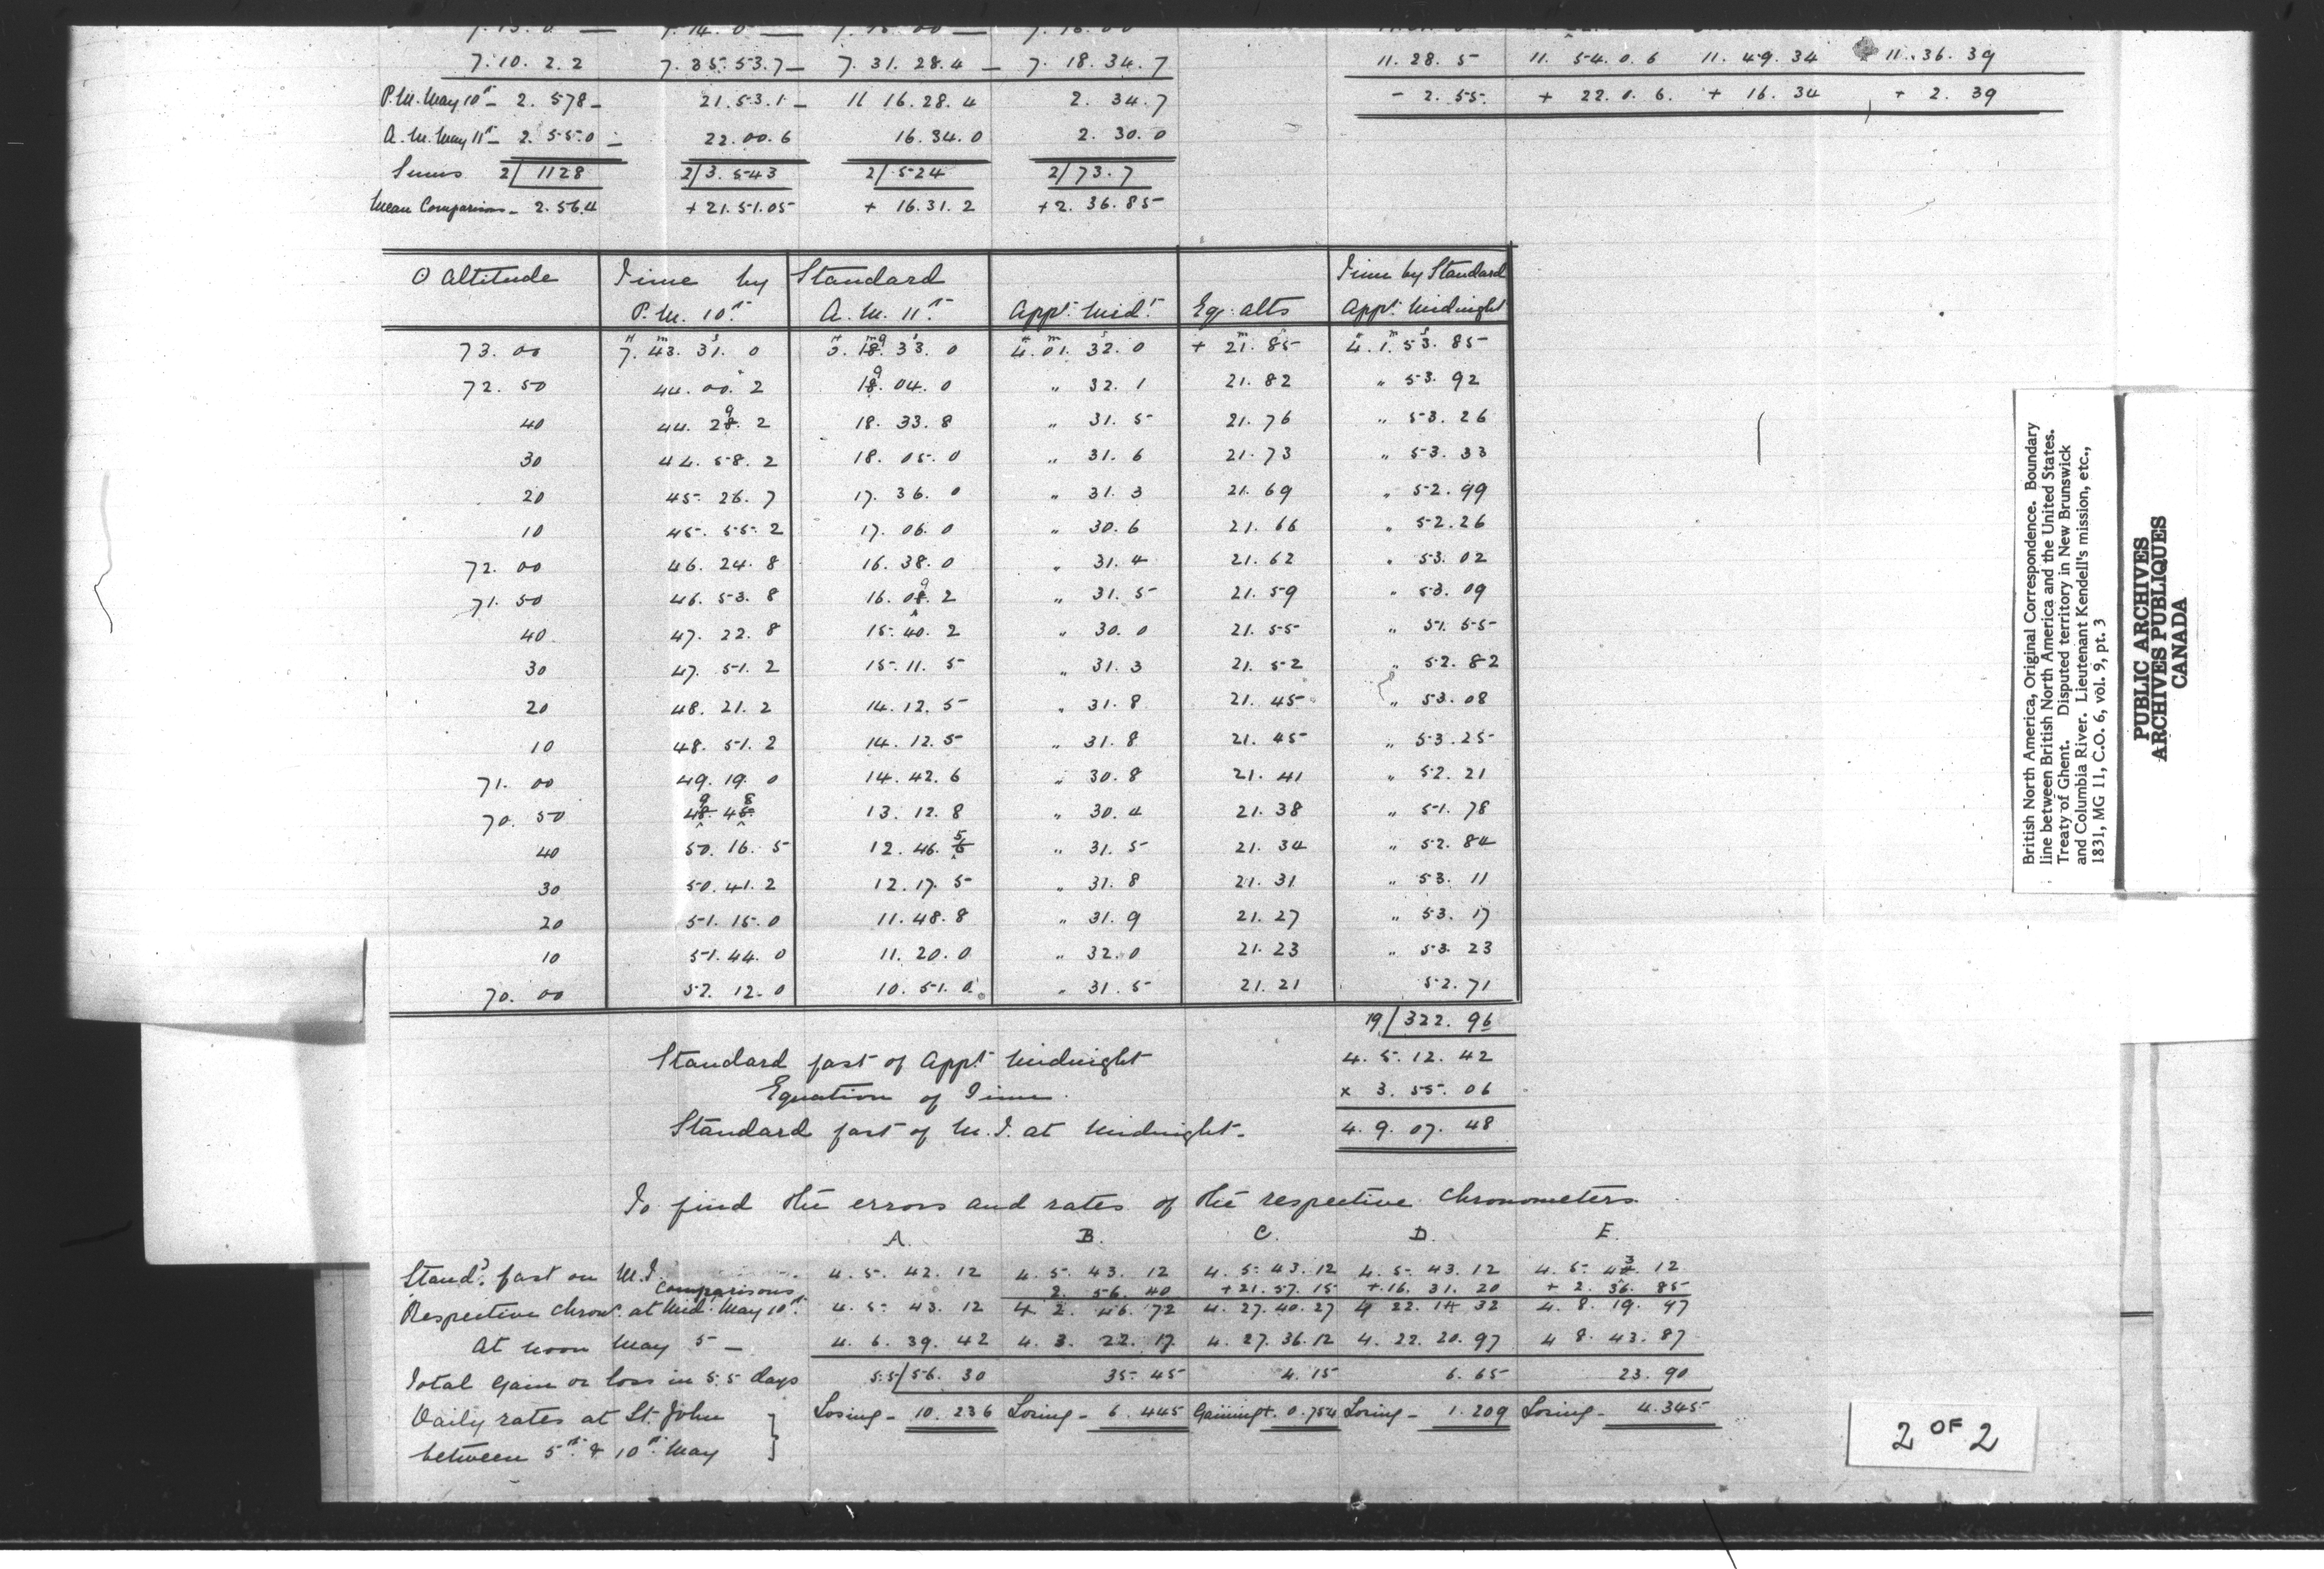 7. 10. 2. 2 7. 35. 53. 7 – 7. 31. 28. 4 – 7. 18. 34. 7 11. 28. 5 11. 54. 0. 6 11. 49. 34 11. 36. 39
P.M. May 10th – 2. 578 – 21. 53. 1 – 11 16. 28. 4 2. 34. 7 – 2. 55. + 22. 0. 6. + 16. 34 + 2. 39
A.M. May 11th – 2. 55. 0 – 22. 00. 6 16. 34. 0 2. 30. 0
Sums 2/ 1128 2/ 3. 543 2/ 524 2/ 73. 7
Mean Comparisons – 2. 56. 4 + 21. 51. 05 + 16. 31. 2 + 2. 36. 85
⊙ Altitude Time by Standard Time by Standard
P.M. 10th A.M. 11th Appt. Midt. Eq. alts Appt. Midnight
73. 00 7. 43. 31. 0 18. 9 33. 0 4. 01. 32. 0 + 21. 85 4. 1. 53. 85
72. 50 44. 00. 2 18. 9 04. 0 " 32. 1 21. 82 " 53. 92
40 44. 28. 9 2 18. 33. 8 " 31. 5 21. 76 " 53. 26
30 44. 58. 2 18. 05. 0 " 31. 6 21. 73 " 53. 33
20 45. 26. 7 17. 36. 0 " 31. 3 21. 69 " 52. 99
10 45. 55. 2 17. 06. 0 " 30. 6 21. 66 " 52. 26
72. 00 46. 24. 8 16. 38. 0 " 31. 4 21. 62 " 53. 02
71. 50 46. 53. 8 16. 08. 9 2 " 31. 5 21. 59 " 53. 09
40 47. 22. 8 15. 40. 2 " 30. 0 21. 55 " 51. 55
30 47. 51. 2 15. 11. 5 " 31. 3 21. 52 " 52. 82
20 48. 21. 2 14. 12. 5 " 31. 8 21. 45 " 53. 08
10 48. 51. 2 14. 12. 5 " 31. 8 21. 45 " 53. 25
71. 00 49. 19. 0 14. 42. 6 " 30. 8 21. 41 " 52. 21
70. 50 48. 9 45. 8 13. 12. 8 " 30. 4 21. 38 " 51. 78
40 50. 16. 5 12. 46. 5 " 31. 5 21. 34 " 52. 84
30 50. 41. 2 12. 17. 5 " 31. 8 21. 31 " 53. 11
20 51. 15. 0 11. 48. 8 " 31. 9 21. 27 " 53. 17
10 51. 44. 0 11. 20. 0 " 32. 0 21. 23 " 53. 23
70. 00 52. 12. 0 10. 51. 0 " 31. 5 21. 21 52. 71
19/ 322. 96
Standard fast of Appt. Midnight 4. 5. 12. 42
Equation of Time. x 3. 55. 06
Standard fast of M.T. at Midnight – 4. 9. 07. 48
To find the errors and rates of the respective Chronometers
A. B. C. D. E.
Standd. fast on M.T. 4. 5. 42. 12 4. 5. 43. 12 4. 5. 43. 12 4. 5. 43. 12 4. 5. 42. 3 12
Comparisons. 2. 56. 40 + 21. 57. 15 + 16. 31. 20 + 2. 36. 85
Respective Chronr. at Mid. May 10th. 4. 5. 43. 12 4 2. 46. 72 4. 27. 40. 27 4 22. 14 32 4. 8. 19. 97
At noon May 5 – 4. 6. 39. 42 4. 3. 22. 17 4. 27. 36. 12 4. 22. 20. 97 4 8. 43. 87
Total gain or loss in 5.5 days 5.5/ 56. 30 35. 45 4. 15 6. 65 23. 90
Daily rates at St. John Losing – 10. 236 Losing – 6. 445 Gaining +. 0. 754 Losing – 1. 209 Losing – 4. 345
between 5th & 10th May
British North America, Original Correspondence. Boundary
line between British North America and the United States.
Treaty of Ghent. Disputed territory in New Brunswick
and Columbia River. Lieutenant Kendell's mission, etc.,
1831, MG 11, C.O. 6, vol. 9, pt. 3
PUBLIC ARCHIVES
ARCHIVES PUBLIQUES
CANADA
2 OF 2